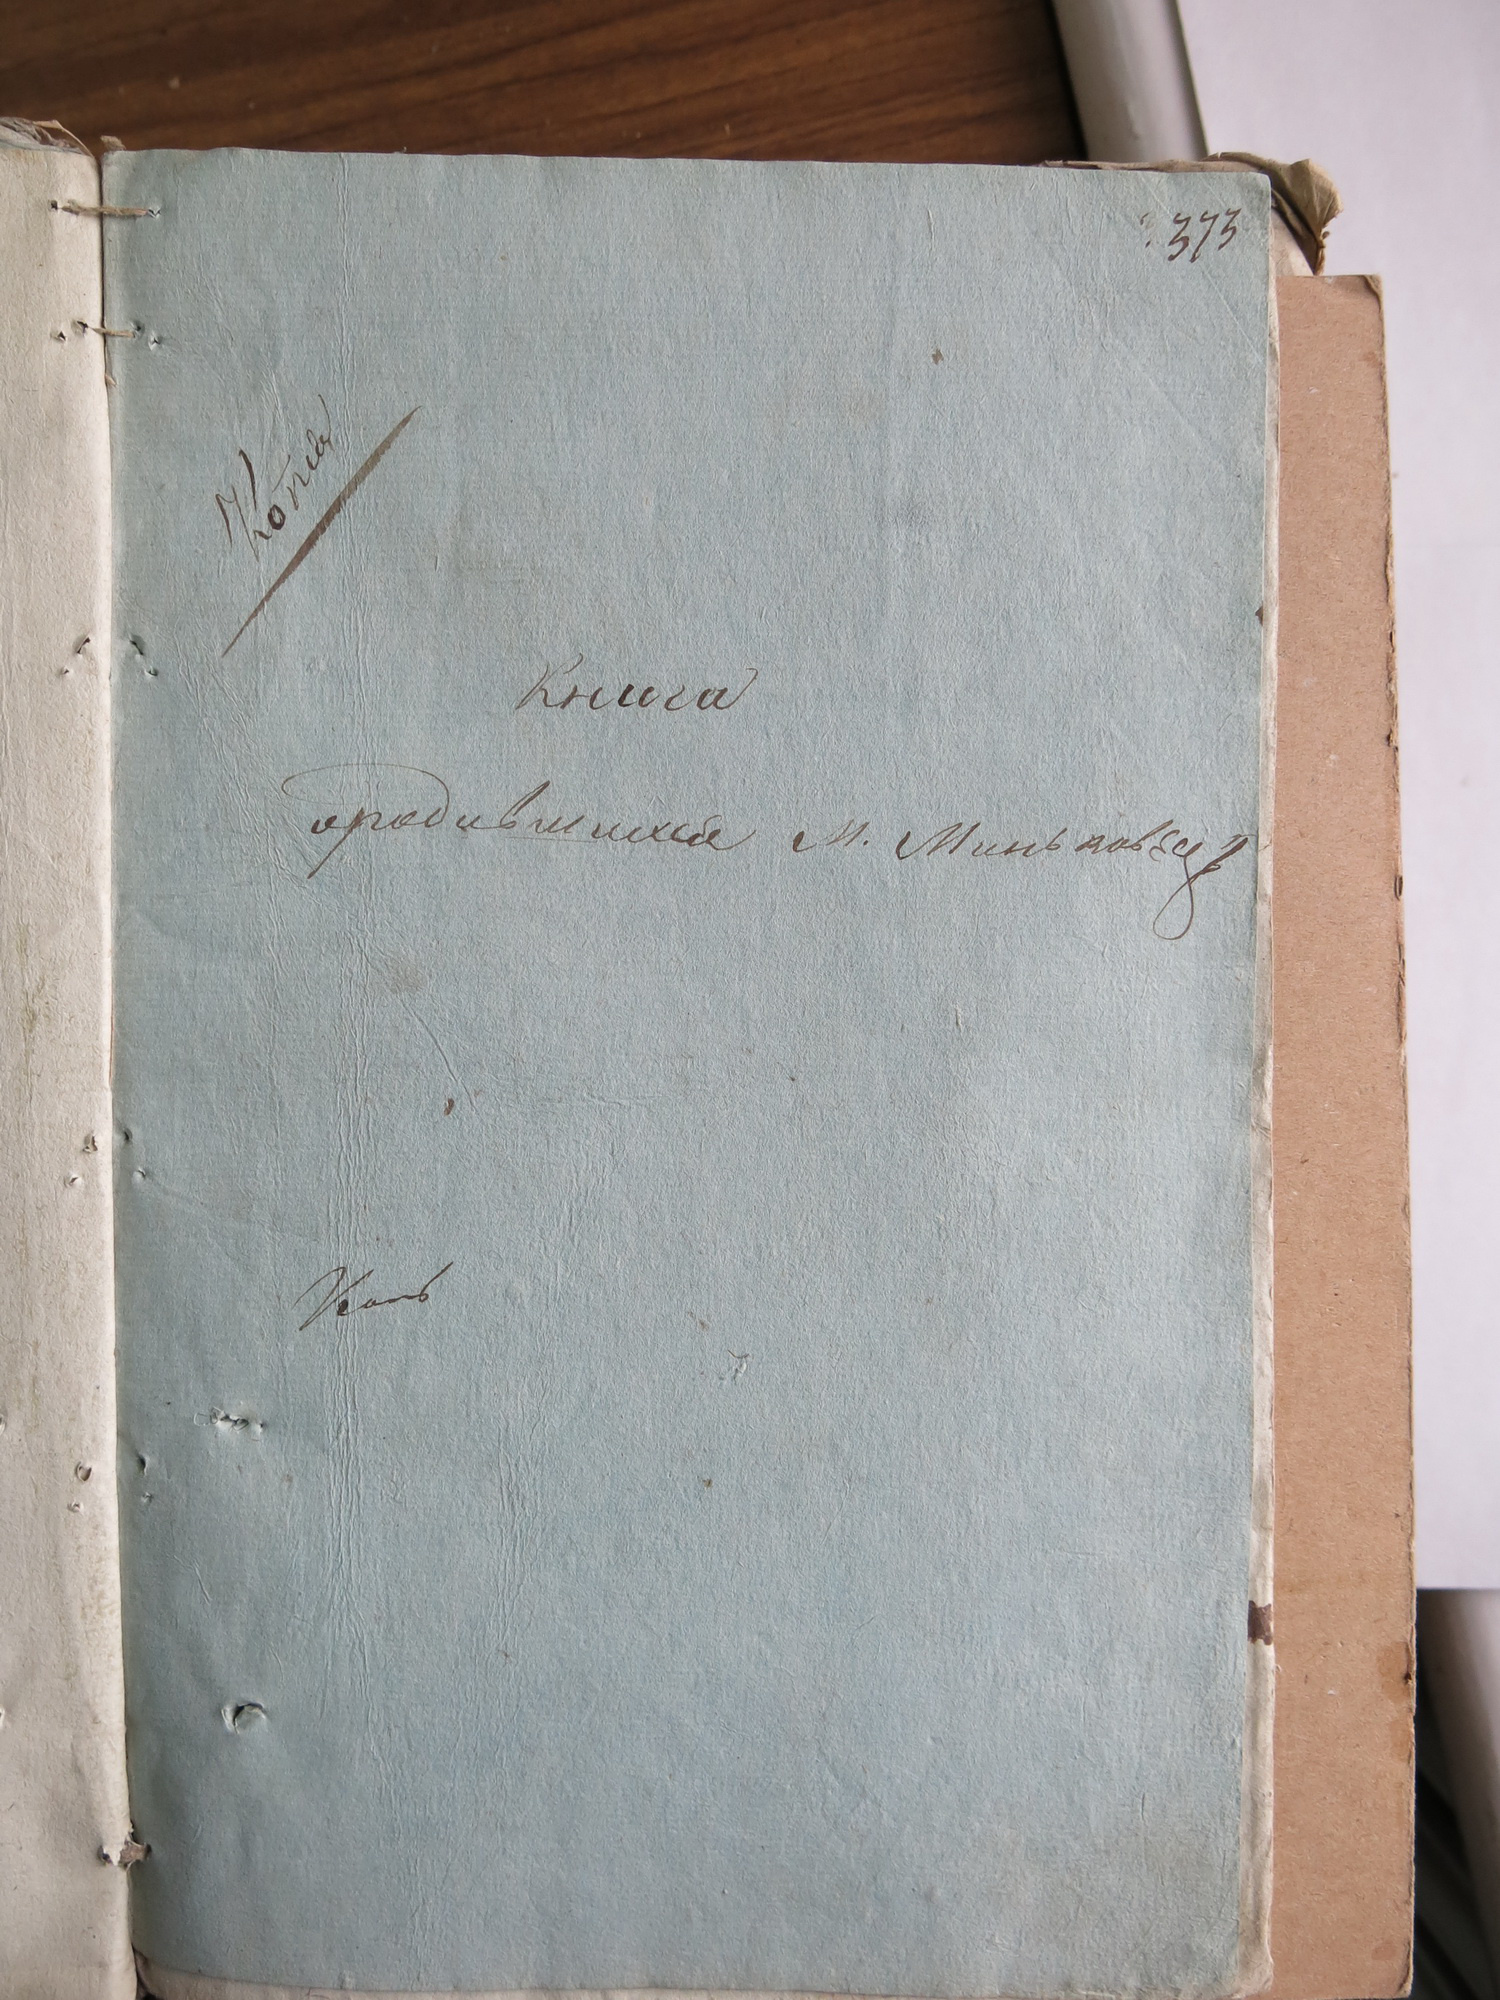 373
Копія
Книга
ородившихся М. Миньковец